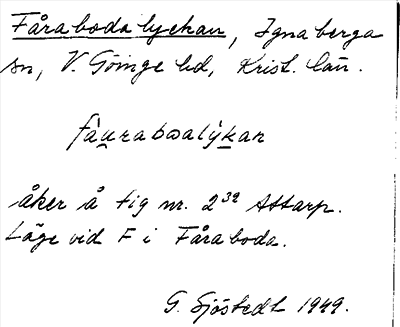 Fåraboda lyckan, Ignaberga
sn, V. Göinge hd, Krist. län.
fàuraboalýkan
åker å fig nr. 2³² Attarp.
Läge vid F i Fåraboda.
G. Sjöstedt 1949.